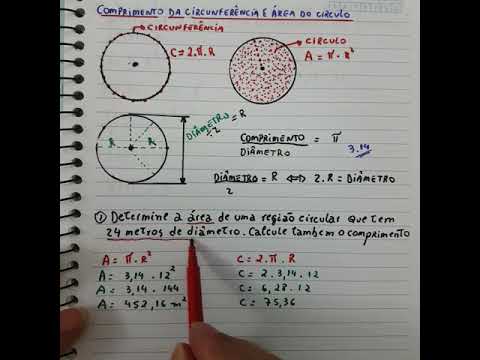 COMPRIMENTO DA CIRCUNFERÊNCIA E ÁREA DO CÍRCULO
CIRCUNFERÊNCIA
C = 2.π.R
CÍRCULO
A = π . R²
DIÂMETRO = R
2
R R
COMPRIMENTO = π
DIÂMETRO
3.14
DIÂMETRO = R ⇔ 2.R = DIÂMETRO
2
① Determine a área de uma região circular que tem
24 metros de diâmetro. Calcule também o comprimento
A = π . R²
A = 3,14 . 12²
A = 3,14 . 144
A = 452,16 m²
C = 2 . π . R
C = 2 . 3,14 . 12
C = 6,28 . 12
C = 75,36